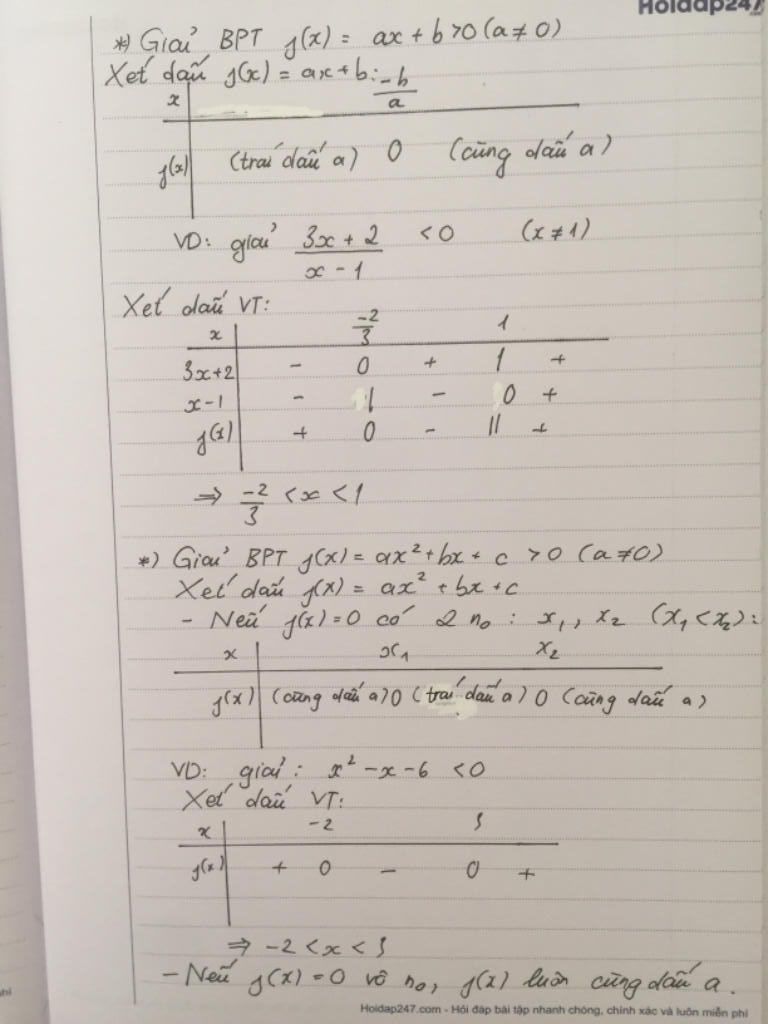 Hoidap247
*) Giải BPT f(x) = ax + b > 0 (a ≠ 0)
Xét dấu f(x) = ax + b:
x | -b/a
f(x) | (trái dấu a) 0 (cùng dấu a)
VD: giải (3x + 2)/(x - 1) < 0 (x ≠ 1)
Xét dấu VT:
x | -2/3 1
3x+2 | - 0 + | +
x-1 | - | - 0 +
f(x) | + 0 - || +
⇒ -2/3 < x < 1
*) Giải BPT f(x) = ax² + bx + c > 0 (a ≠ 0)
Xét dấu f(x) = ax² + bx + c
- Nếu f(x) = 0 có 2 no : x₁, x₂ (x₁ < x₂):
x | x₁ x₂
f(x) | (cùng dấu a) 0 (trái dấu a) 0 (cùng dấu a)
VD: giải: x² - x - 6 < 0
Xét dấu VT:
x | -2 3
f(x) | + 0 - 0 +
⇒ -2 < x < 3
- Nếu f(x) = 0 vô no, f(x) luôn cùng dấu a.
Hoidap247.com - Hỏi đáp bài tập nhanh chóng, chính xác và luôn miễn phí